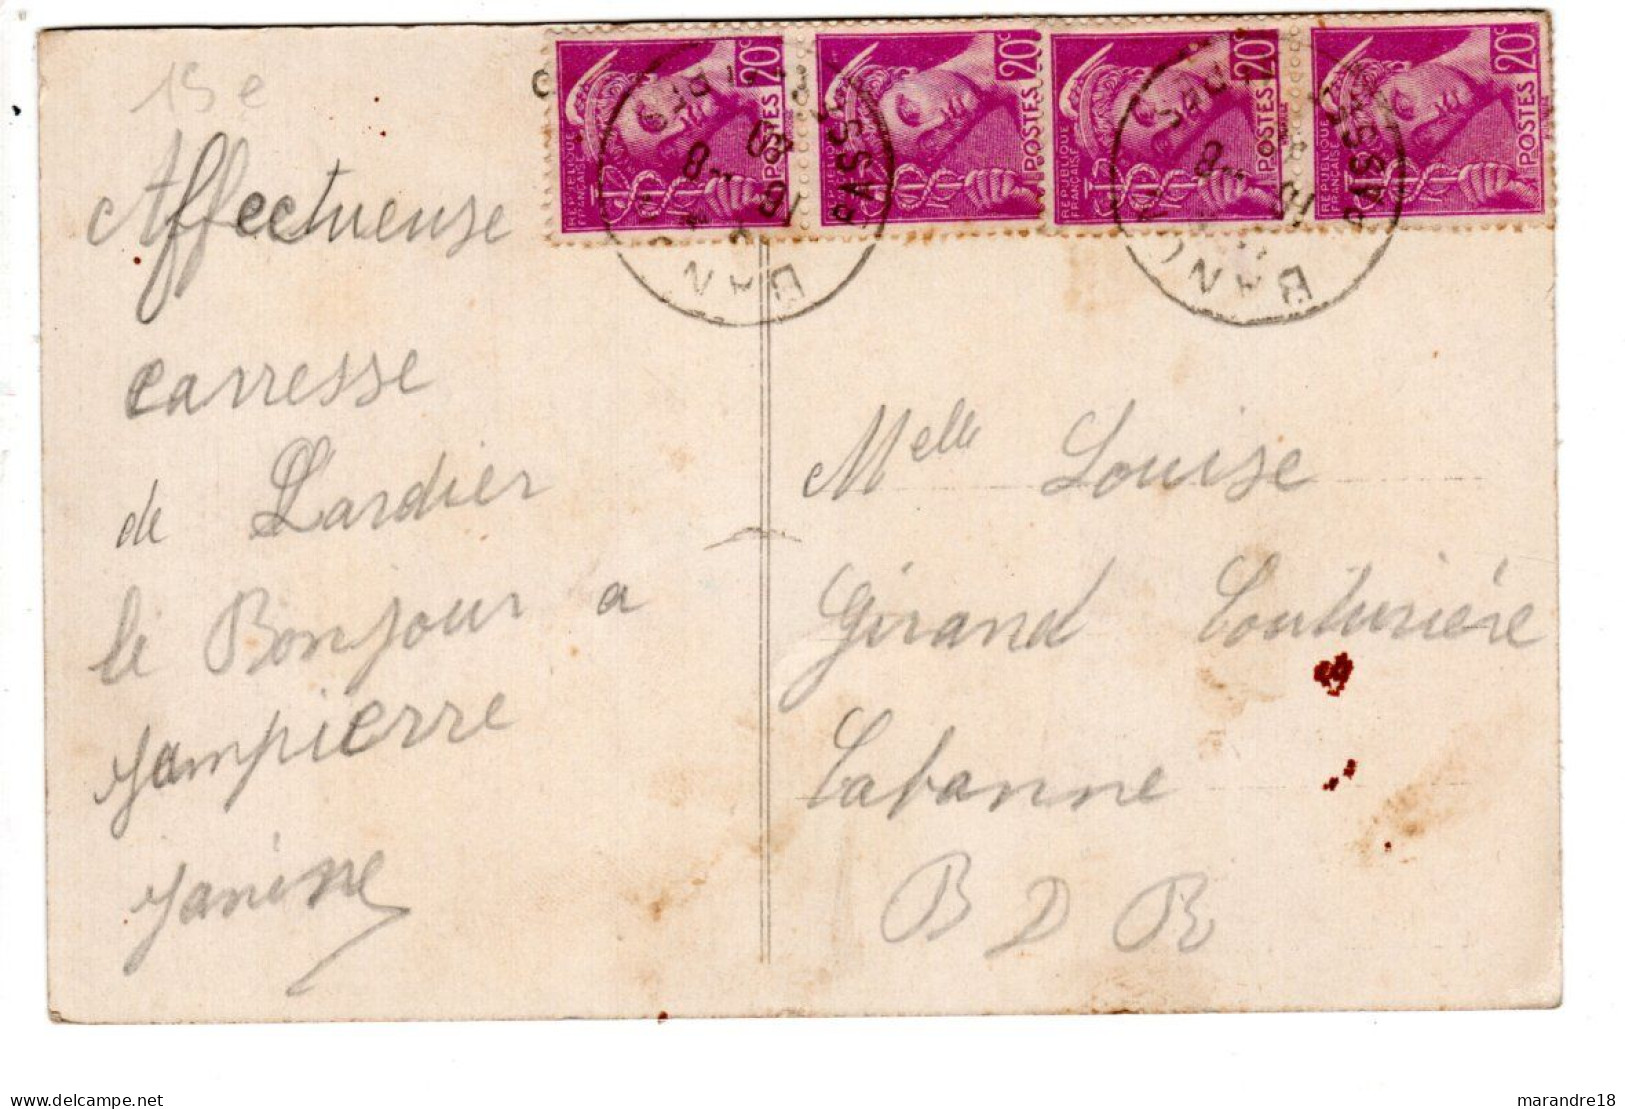 15 e
Affectueuse
carresse
de Lardier
le Bonjour a
Jampierre
Janine
20c
POSTES
REPUBLIQUE
FRANÇAISE
20c
POSTES
REPUBLIQUE
FRANÇAISE
20c
POSTES
REPUBLIQUE
FRANÇAISE
20c
POSTES
REPUBLIQUE
FRANÇAISE
BAN
PASS
BANC
PASS
Melle Louise
Girand Couturière
Cabanne
B D R
Delcampe.net
marandre18